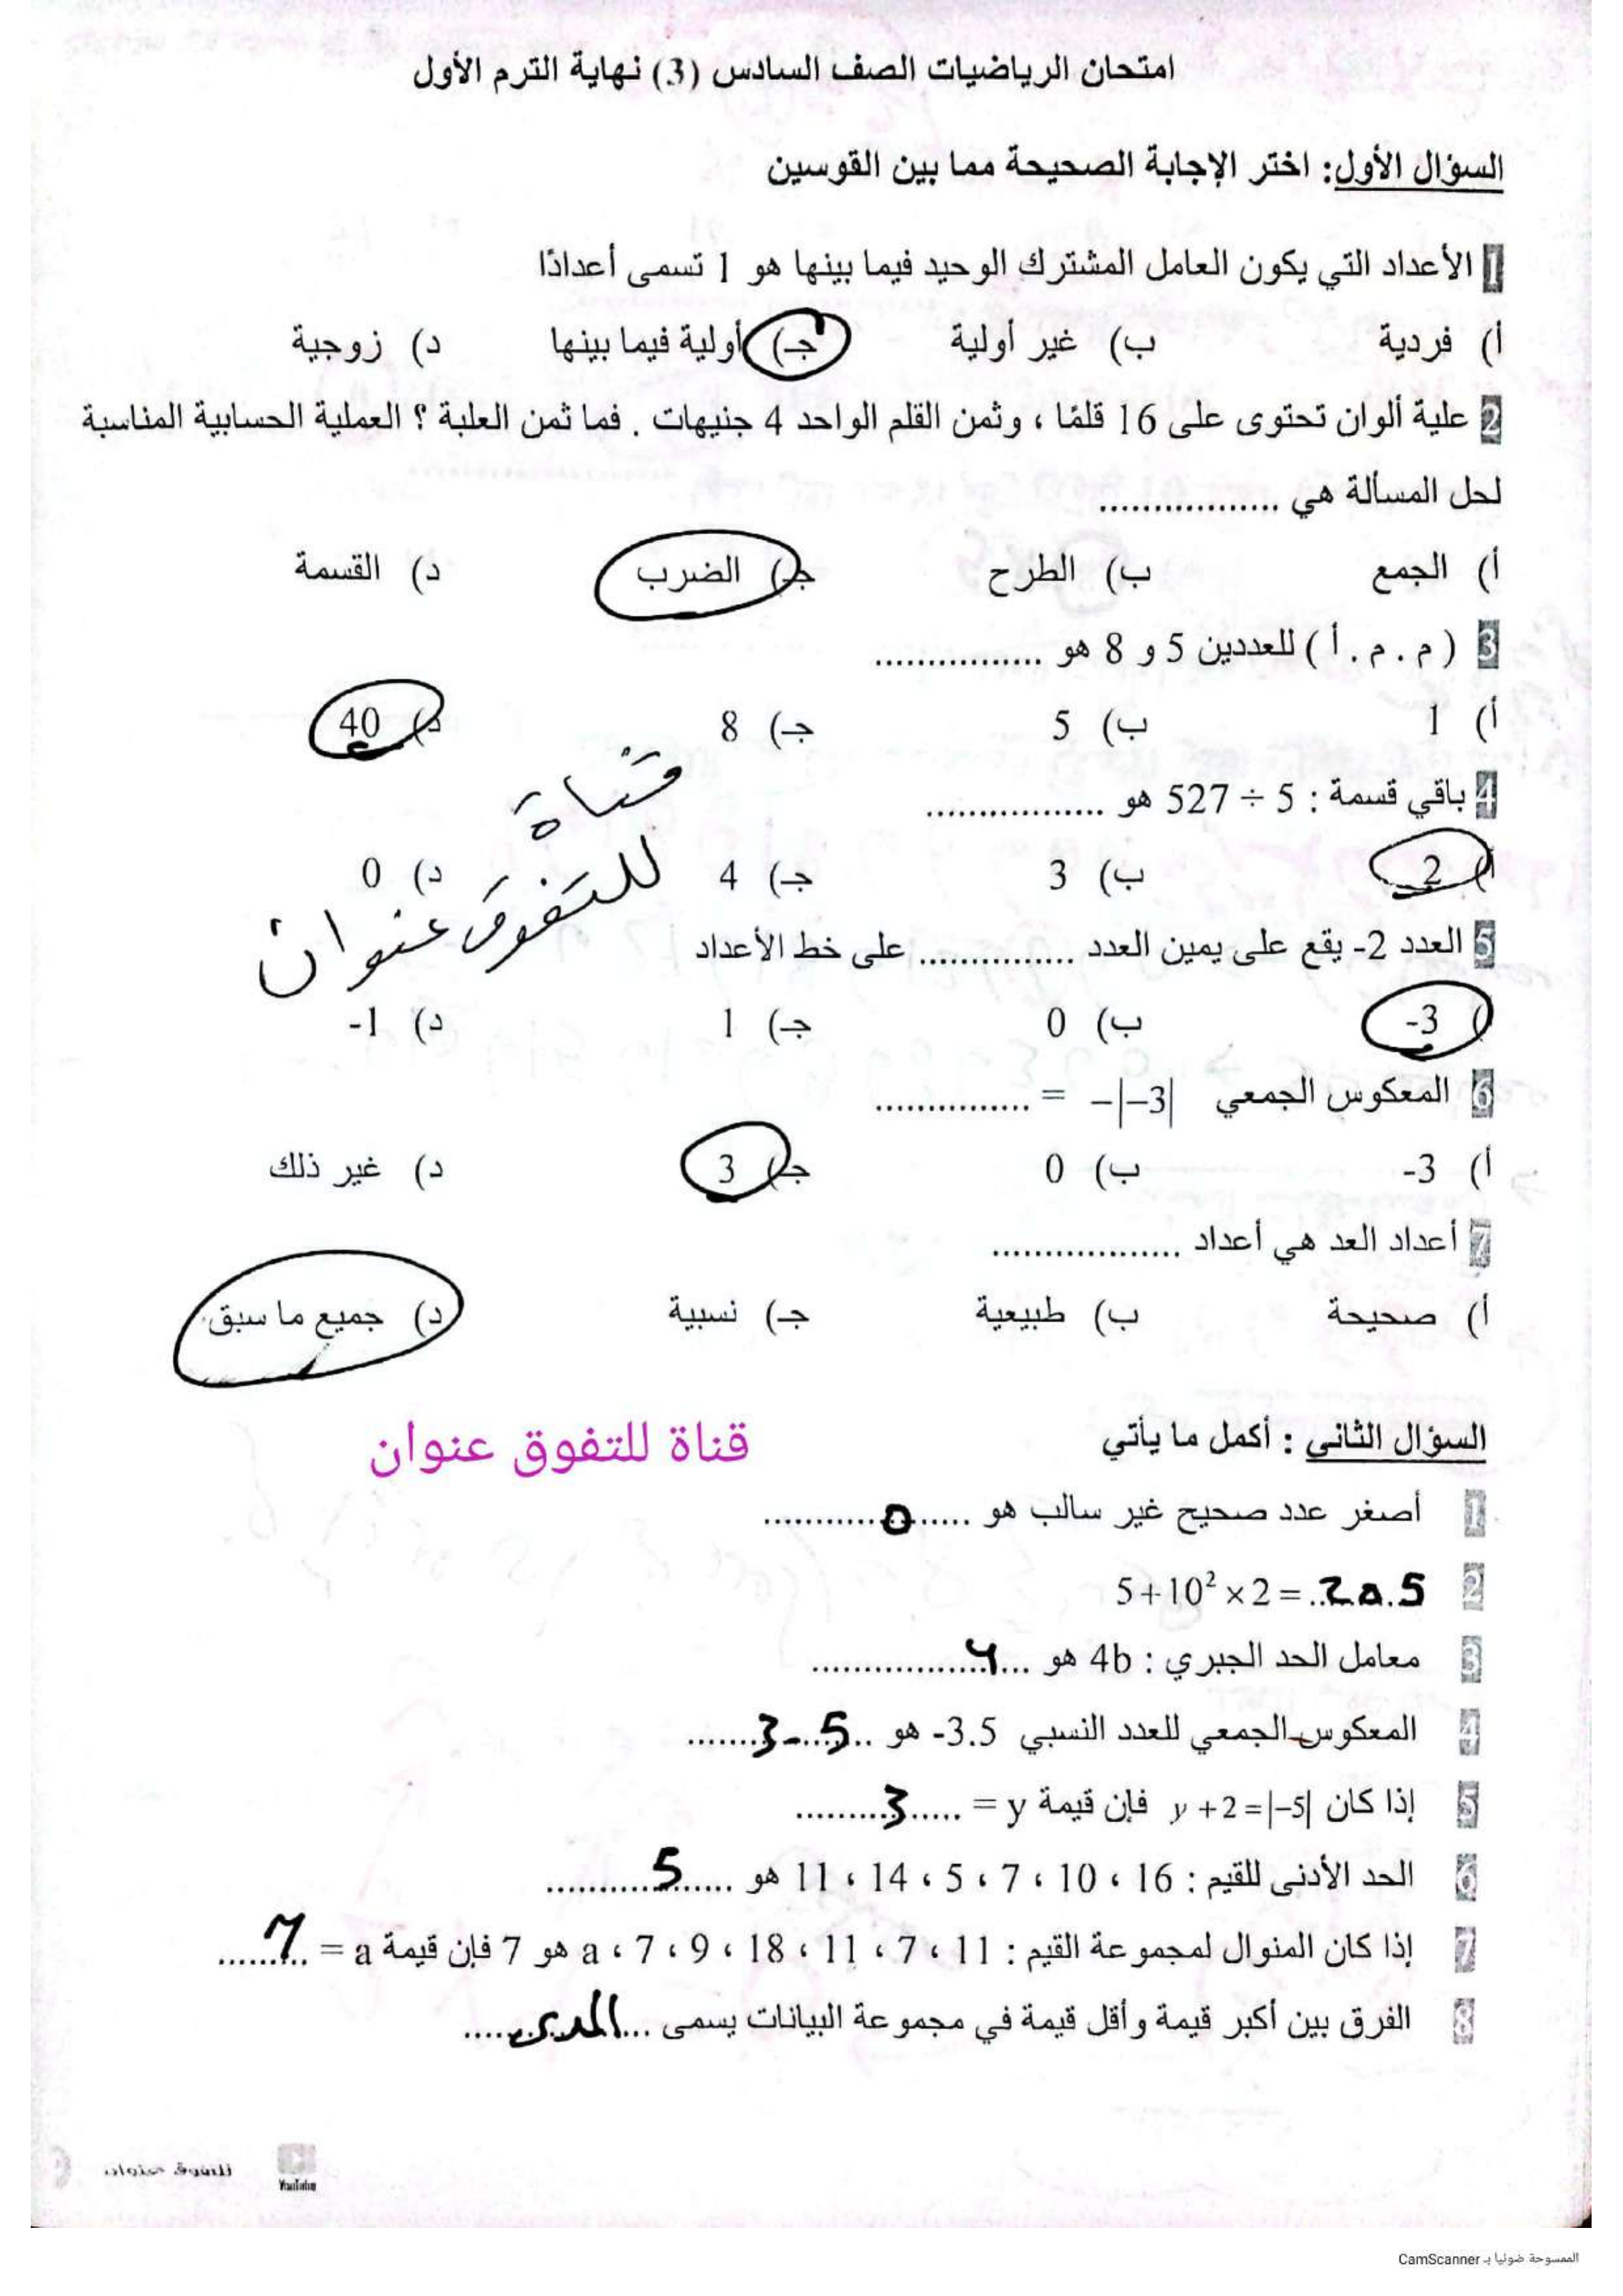 امتحان الرياضيات الصف السادس (3) نهاية الترم الأول
السؤال الأول: اختر الإجابة الصحيحة مما بين القوسين
1 الأعداد التي يكون العامل المشترك الوحيد فيما بينها هو 1 تسمى أعدادًا
أ) فردية ب) غير أولية جـ) أولية فيما بينها د) زوجية
2 علية ألوان تحتوى على 16 قلمًا ، وثمن القلم الواحد 4 جنيهات . فما ثمن العلبة ؟ العملية الحسابية المناسبة
لحل المسألة هي ..................
أ) الجمع ب) الطرح جـ) الضرب د) القسمة
3 ( م . م . أ ) للعددين 5 و 8 هو ................
أ) 1 ب) 5 جـ) 8 د) 40
قناة
4 باقي قسمة : 5 ÷ 527 هو .................
أ) 2 ب) 3 جـ) 4 د) 0
للتفوق عنوان
5 العدد 2- يقع على يمين العدد ............... على خط الأعداد
أ) -3 ب) 0 جـ) 1 د) -1
6 المعكوس الجمعي −|−3| = ...............
أ) -3 ب) 0 جـ) 3 د) غير ذلك
7 أعداد العد هي أعداد ..................
أ) صحيحة ب) طبيعية جـ) نسبية د) جميع ما سبق
السؤال الثانى : أكمل ما يأتي
قناة للتفوق عنوان
1 أصغر عدد صحيح غير سالب هو .....0...........
2 5+10² × 2 = ..205
3 معامل الحد الجبري : 4b هو ...4.................
4 المعكوس الجمعي للعدد النسبي -3.5 هو ..3.5.......
5 إذا كان y + 2 = |−5| فإن قيمة y = .....3.........
6 الحد الأدنى للقيم : 16 ، 10 ، 7 ، 5 ، 14 ، 11 هو ......5...........
7 إذا كان المنوال لمجموعة القيم : 11 ، 7 ، 11 ، 18 ، 9 ، 7 ، a هو 7 فإن قيمة a = ..7.......
8 الفرق بين أكبر قيمة وأقل قيمة في مجموعة البيانات يسمى ...المدى.....
YouTube
للتفوق عنوان
الممسوحة ضوئيا بـ CamScanner